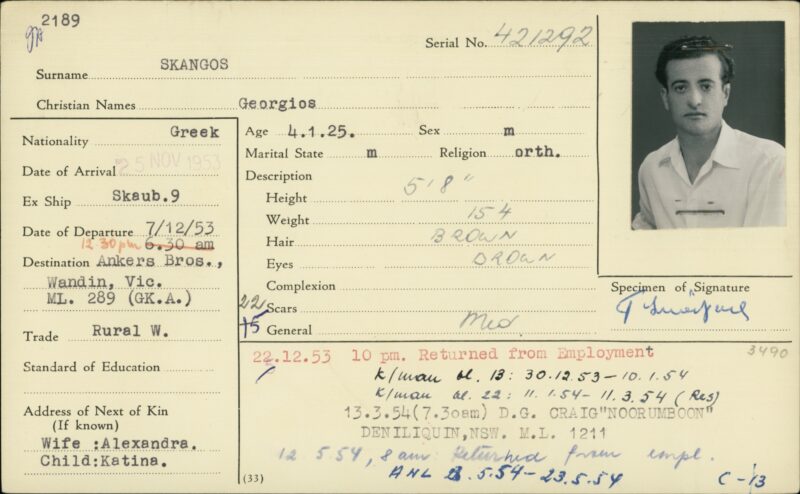 2189
Serial No. 421292
Surname SKANGOS
Christian Names Georgios
Nationality Greek
Date of Arrival 25 NOV 1953
Ex Ship Skaub.9
Date of Departure 7/12/53
12 30pm 6.30 am
Destination Ankers Bros.,
Wandin, Vic.
ML. 289 (GK.A.)
Trade Rural W.
Standard of Education
Address of Next of Kin
(If known)
Wife :Alexandra.
Child:Katina.
Age 4.1.25. Sex m
Marital State m Religion orth.
Description
Height 5'8"
Weight 154
Hair BROWN
Eyes BROWN
Complexion
22 Scars
+5 General Med
Specimen of Signature
22.12.53 10 pm. Returned from Employment 3490
K/man bl. 13: 30.12.53-10.1.54
K/man bl. 22: 11.1.54-11.3.54 (Res)
13.3.54(7.30am) D.G. CRAIG"NOORUMBOON"
DENILIQUIN,NSW. M.L. 1211
12 5.54, 8 am Returned from empl.
ANL 5.54-23.5.54 C-13
(33)